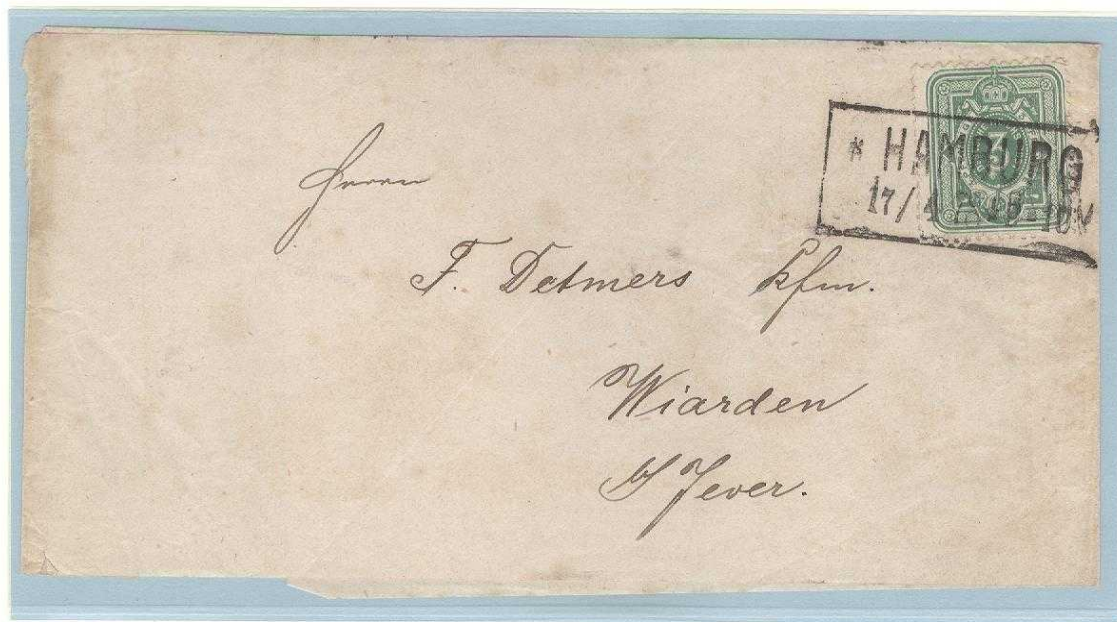 * HAMBURG
17/4
3
Herrn
F. Detmers Kfm.
Wiarden
b/ Jever.